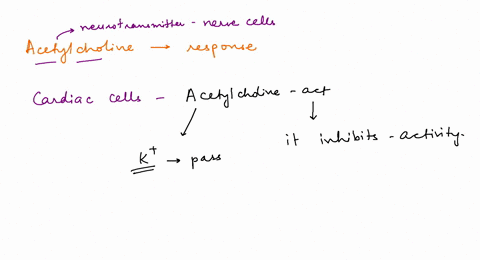 neurotransmitter - nerve cells
Acetylcholine → response
Cardiac cells - Acetylcholine - act
it inhibits - activity.
K+ → pass